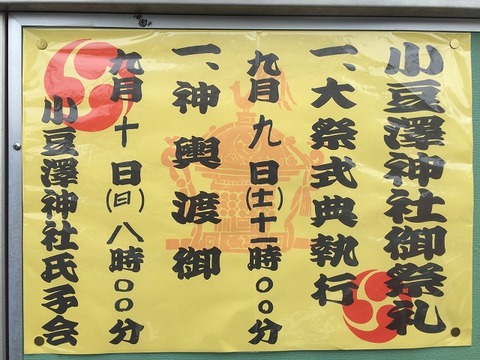 小豆澤神社御祭礼
一、大祭式典執行
九月九日(土)十一時〇〇分
一、神輿渡御
九月十日(日)八時〇〇分
小豆澤神社氏子会